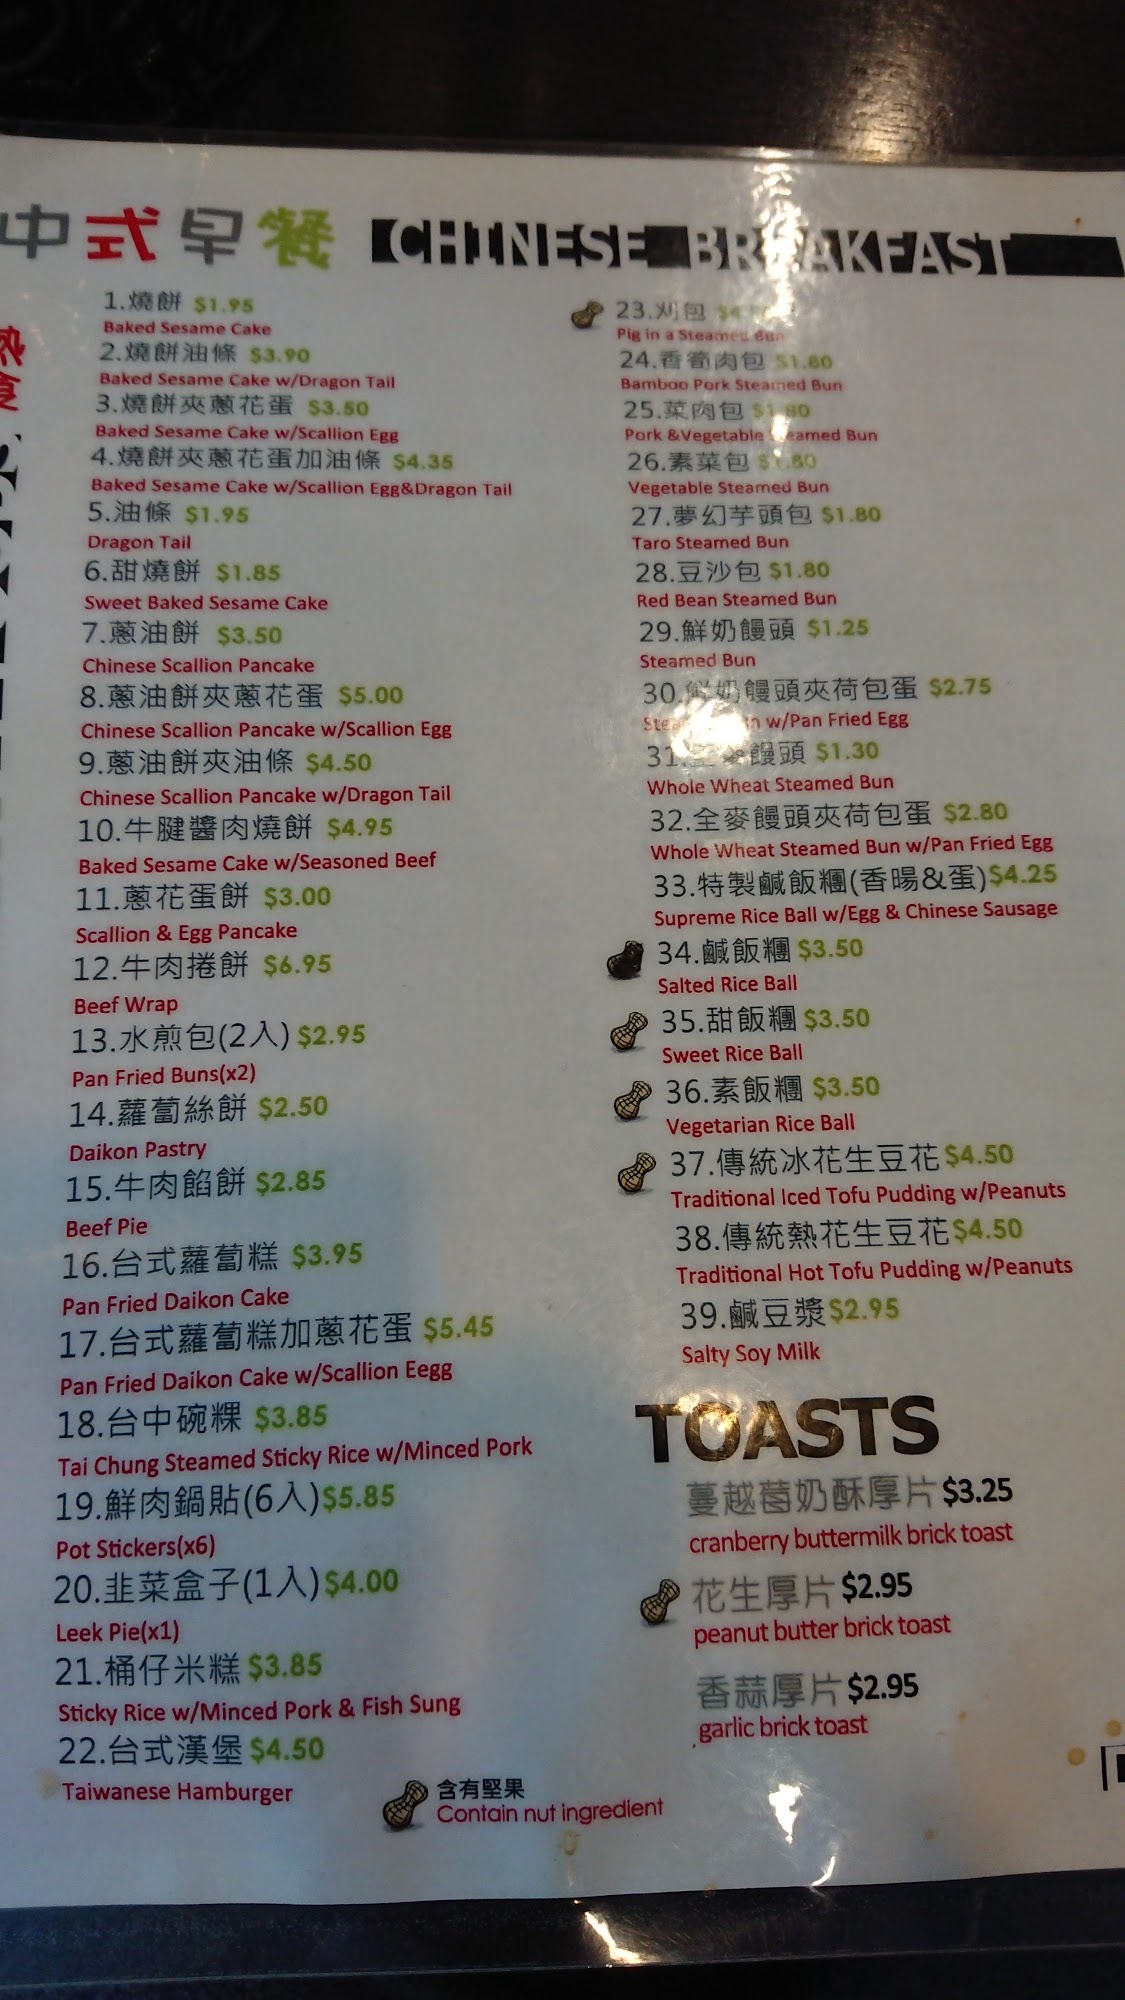 中式早餐 CHINESE BREAKFAST
1.燒餅 $1.95
Baked Sesame Cake
2.燒餅油條 $3.90
Baked Sesame Cake w/Dragon Tail
3.燒餅夾蔥花蛋 $3.50
Baked Sesame Cake w/Scallion Egg
4.燒餅夾蔥花蛋加油條 $4.35
Baked Sesame Cake w/Scallion Egg&Dragon Tail
5.油條 $1.95
Dragon Tail
6.甜燒餅 $1.85
Sweet Baked Sesame Cake
7.蔥油餅 $3.50
Chinese Scallion Pancake
8.蔥油餅夾蔥花蛋 $5.00
Chinese Scallion Pancake w/Scallion Egg
9.蔥油餅夾油條 $4.50
Chinese Scallion Pancake w/Dragon Tail
10.牛腱醬肉燒餅 $4.95
Baked Sesame Cake w/Seasoned Beef
11.蔥花蛋餅 $3.00
Scallion & Egg Pancake
12.牛肉捲餅 $6.95
Beef Wrap
13.水煎包(2入) $2.95
Pan Fried Buns(x2)
14.蘿蔔絲餅 $2.50
Daikon Pastry
15.牛肉餡餅 $2.85
Beef Pie
16.台式蘿蔔糕 $3.95
Pan Fried Daikon Cake
17.台式蘿蔔糕加蔥花蛋 $5.45
Pan Fried Daikon Cake w/Scallion Eegg
18.台中碗粿 $3.85
Tai Chung Steamed Sticky Rice w/Minced Pork
19.鮮肉鍋貼(6入)$5.85
Pot Stickers(x6)
20.韭菜盒子(1入)$4.00
Leek Pie(x1)
21.桶仔米糕 $3.85
Sticky Rice w/Minced Pork & Fish Sung
22.台式漢堡 $4.50
Taiwanese Hamburger
含有堅果
Contain nut ingredient
23.刈包
Pig in a Steamed Bun
24.香筍肉包 $1.80
Bamboo Pork Steamed Bun
25.菜肉包 $1.80
Pork &Vegetable Steamed Bun
26.素菜包 $1.80
Vegetable Steamed Bun
27.夢幻芋頭包 $1.80
Taro Steamed Bun
28.豆沙包 $1.80
Red Bean Steamed Bun
29.鮮奶饅頭 $1.25
Steamed Bun
30.鮮奶饅頭夾荷包蛋 $2.75
Steamed Bun w/Pan Fried Egg
31.全麥饅頭 $1.30
Whole Wheat Steamed Bun
32.全麥饅頭夾荷包蛋 $2.80
Whole Wheat Steamed Bun w/Pan Fried Egg
33.特製鹹飯糰(香暘&蛋)$4.25
Supreme Rice Ball w/Egg & Chinese Sausage
34.鹹飯糰 $3.50
Salted Rice Ball
35.甜飯糰 $3.50
Sweet Rice Ball
36.素飯糰 $3.50
Vegetarian Rice Ball
37.傳統冰花生豆花 $4.50
Traditional Iced Tofu Pudding w/Peanuts
38.傳統熱花生豆花 $4.50
Traditional Hot Tofu Pudding w/Peanuts
39.鹹豆漿 $2.95
Salty Soy Milk
TOASTS
蔓越莓奶酥厚片 $3.25
cranberry buttermilk brick toast
花生厚片 $2.95
peanut butter brick toast
香蒜厚片 $2.95
garlic brick toast